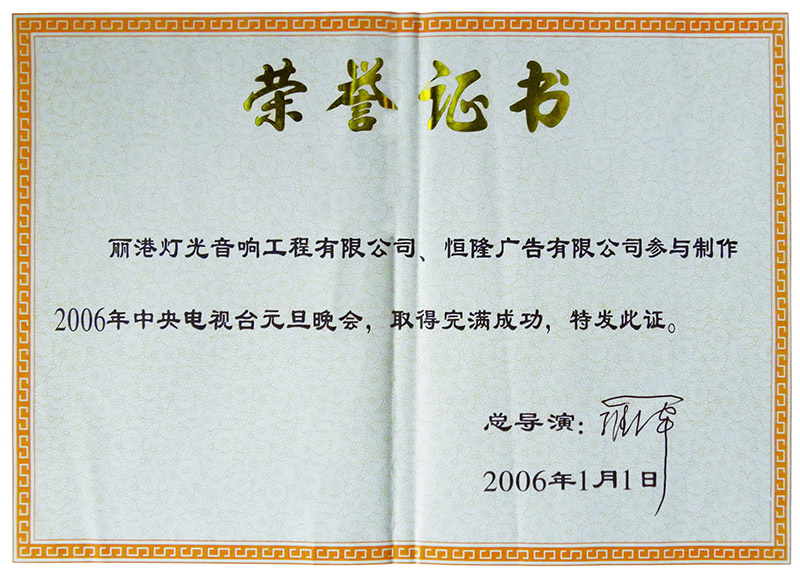 荣誉证书
丽港灯光音响工程有限公司、恒隆广告有限公司参与制作
2006年中央电视台元旦晚会，取得完满成功，特发此证。
总导演：
2006年1月1日